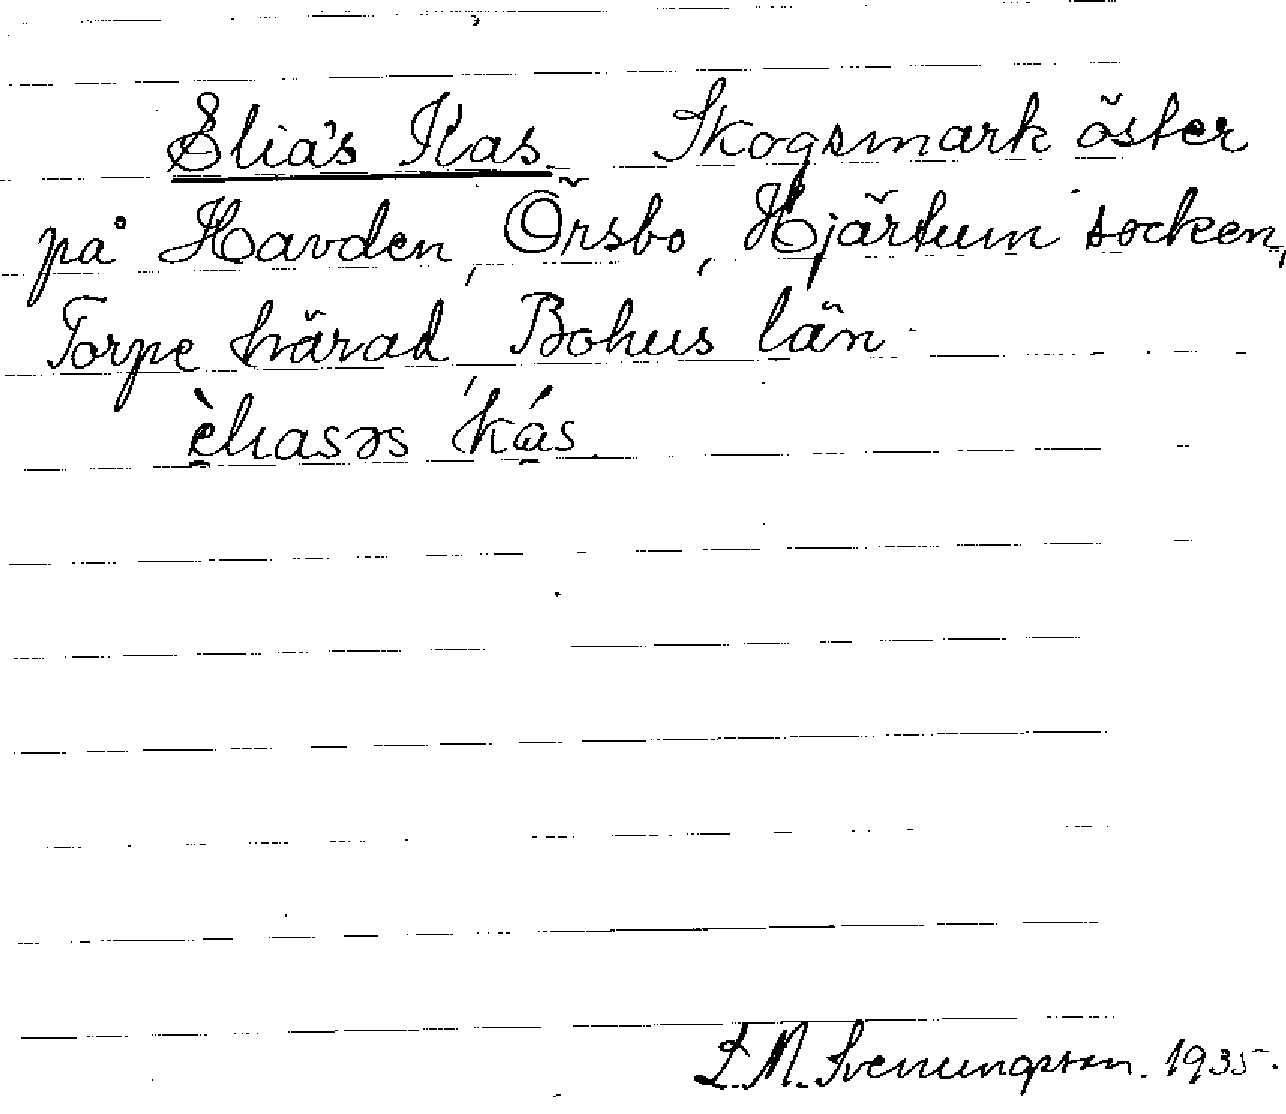 Elia's Kas. Skogsmark öster
på Havden, Örsbo, Hjärtum socken,
Torpe härad, Bohus län.
èliasəs kás.
L.M. Svenungsson. 1935.